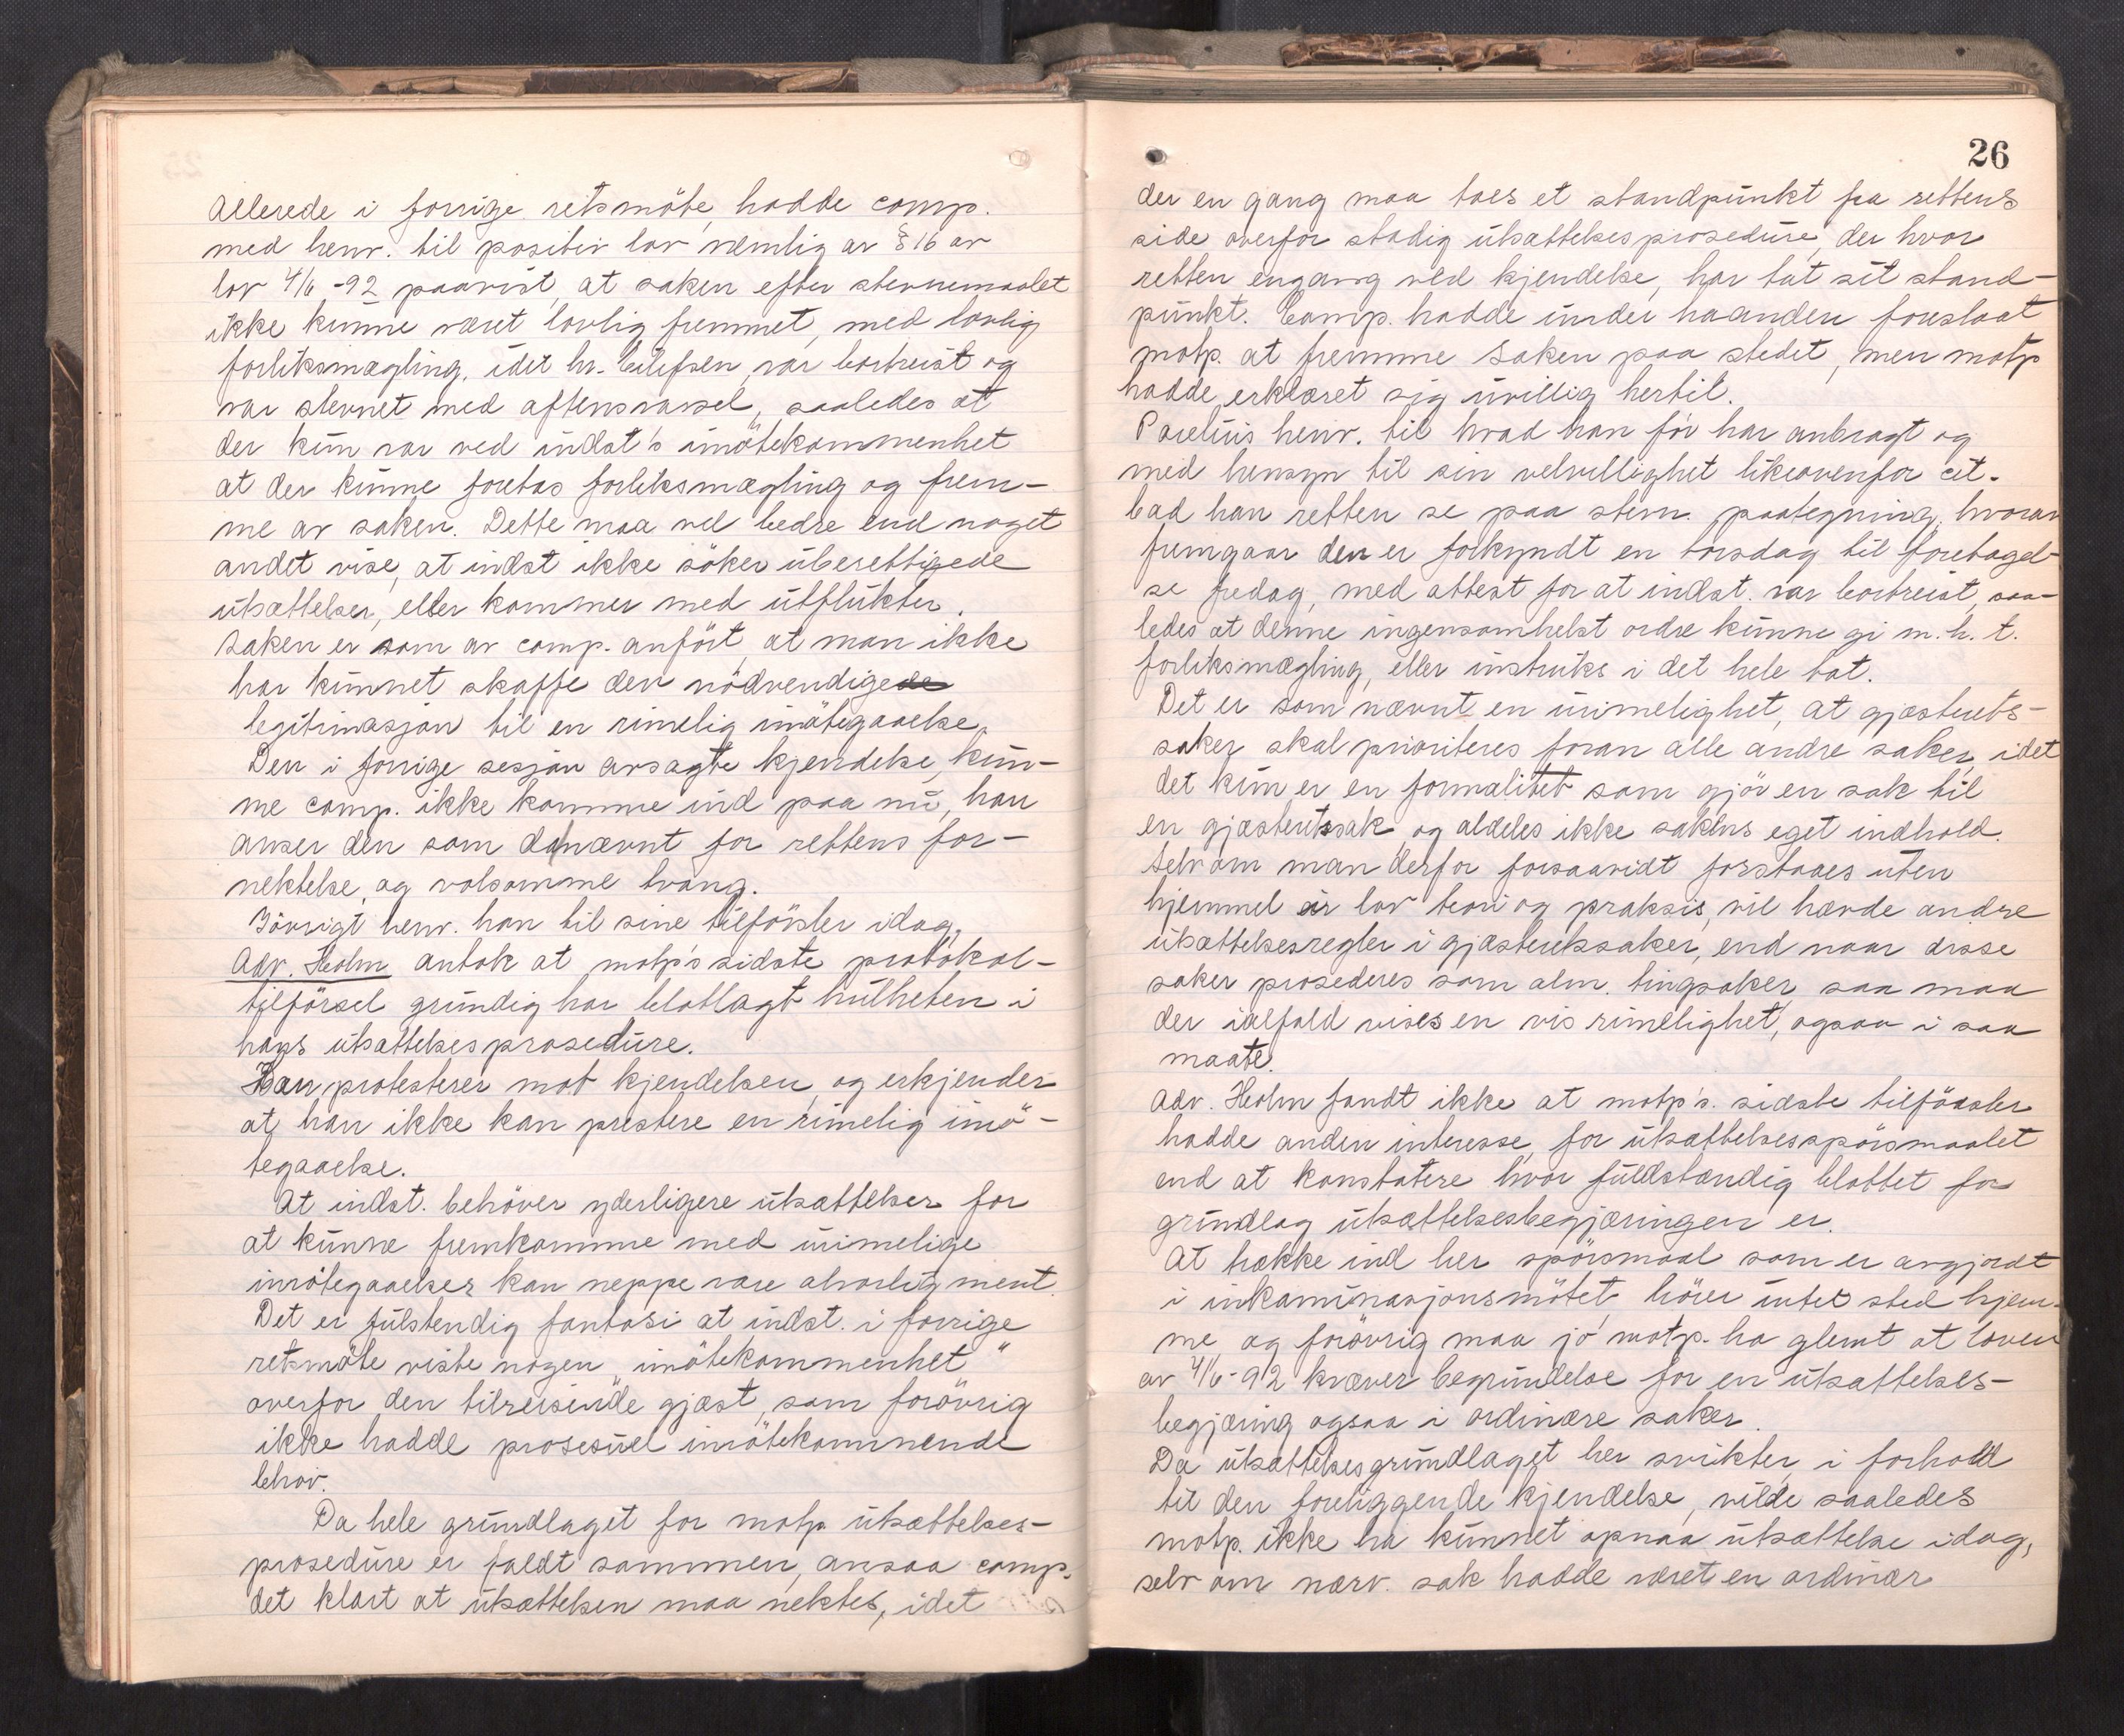 Allerede i forrige retsmöte, hadde comp.
med henv. til positiv lov nemlig av § 16 av
lov 4/6 -92 paavist, at saken efter stevnemaalet
ikke kunne været lovlig fremmet, med lovlig
forliksmægling, idet hr. Eilifsen var bortreist og
var stevnet med aftensvarsel, saaledes at
der kun var ved indst's imötekommenhet
at der kunne foretas forliksmægling og frem-
me av saken. Dette maa vel bedre end noget
andet vise, at indst ikke söker uberettigede
utsættelser, eller kommer med utflukter.
Saken er som av comp. anfört, at man ikke
har kunnet skaffe den nödvendige
legitimasjon til en rimelig imötegaaelse.
Den i forrige sesjon avsagte kjendelse, kun-
ne comp. ikke komme ind paa nu, han
anser den som nævnt for rettens for-
nektelse, og volsomme tvang.
Iövrigt henv. han til sine tilförsler idag,
Adv. Holm antok at motp's sidste protokol-
tilförsel grundig har blotlagt hulheten i
hans utsættelsesprosedure.
Han protesterer mot kjendelsen, og erkjender
at han ikke kan prestere en rimelig imö-
tegaaelse.
At indst. behöver yderligere utsættelser for
at kunne fremkomme med urimelige
imötegaaelser kan neppe være alvorlig ment.
Det er fulstendig fantasi at indst. i forrige
retsmöte viste nogen imötekommenhet"
overfor den tilreisende gjæst, som forövrig
ikke hadde prosesuel imötekommende
behov.
Da hele grundlaget for motp. utsættelses-
prosedure er faldt sammen, ansaa comp.
det klart at utsættelsen maa nektes, idet
26
der en gang maa taes et standpunkt fra rettens
side overfor stadig utsættelsesprosedure, der hvor
retten engang ved kjendelse, har tat sit stand-
punkt. Comp. hadde under haanden foreslaat
motp. at fremme saken paa stedet, men motp
hadde erklæret sig uvillig hertil.
Parelius henv. til hvad han för har anbragt og
med hensyn til sin velvillighet likeovenfor cit.
bad han retten se paa stevn. paategning, hvorav
fremgaar den er forkyndt en torsdag til foretagel-
se fredag, med attest for at indst. var bortreist, saa-
ledes at denne ingensomhelst ordre kunne gi m.h.t.
forliksmægling, eller instruks i det hele tat.
Det er som nævnt en urimelighet, at gjæsterets-
saker skal prioriteres foran alle andre saker, idet
det kun er en formalitet som gjör en sak til
en gjæsteretssak og aldeles ikke sakens eget indhold.
Selv om man derfor forsaavidt forstaaes uten
hjemmel i lov teori og praksis, vil hævde andre
utsættelsesregler i gjæsteretssaker, end naar disse
saker prosederes som alm. tingsaker, saa maa
der ialfald vises en vis rimelighet, ogsaa i saa
maate.
Adv. Holm fandt ikke at motp's. sidste tilförsler
hadde anden interesse for utsættelsesspörsmaalet
end at konstatere hvor fuldstændig blottet for
grundlag utsættelsesbegjæringen er.
At trække ind her spörsmaal som er avgjordt
i inkaminasjonsmötet hörer intet sted hjem-
me, og forövrig maa jo motp. ha glemt at loven
av 4/6-92 kræver begrundelse for en utsættelses-
begjæring ogsaa i ordinære saker.
Da utsættelsesgrundlaget her svikter, i forhold
til den foreliggende kjendelse, vilde saaledes
motp. ikke ha kunnet opnaa utsættelse idag,
selv om nærv. sak hadde været en ordinær